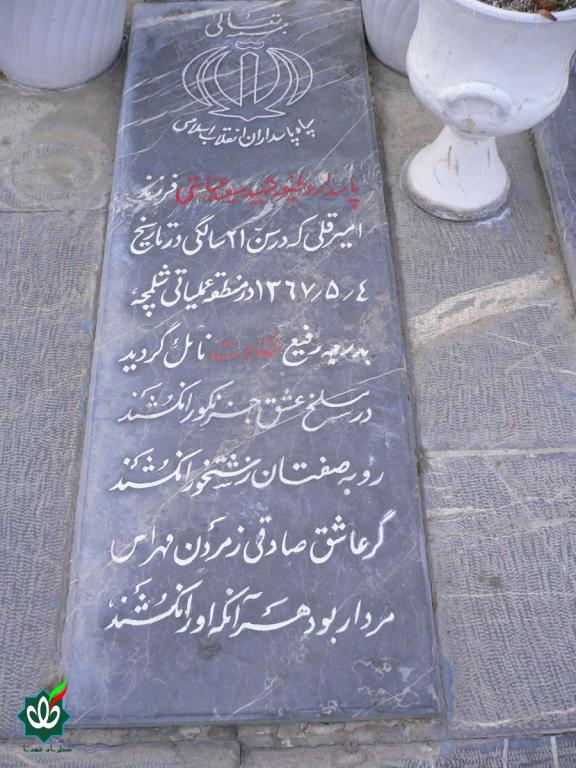 بسمه تعالی
سپاه پاسداران انقلاب اسلامی
پاسدار وظیفه شهید فرزند
امیرقلی که در سن ۲۱ سالگی در تاریخ
۱۳۶۷/۵/۴ در منطقه عملیاتی شلمچه
بدرجه رفیع شهادت نائل گردید
در مسلخ عشق جز نکو را نکشند
روبه صفتان زشتخو را نکشند
گر عاشق صادقی ز مردن مهراس
مردار بود هر آنکه او را نکشند